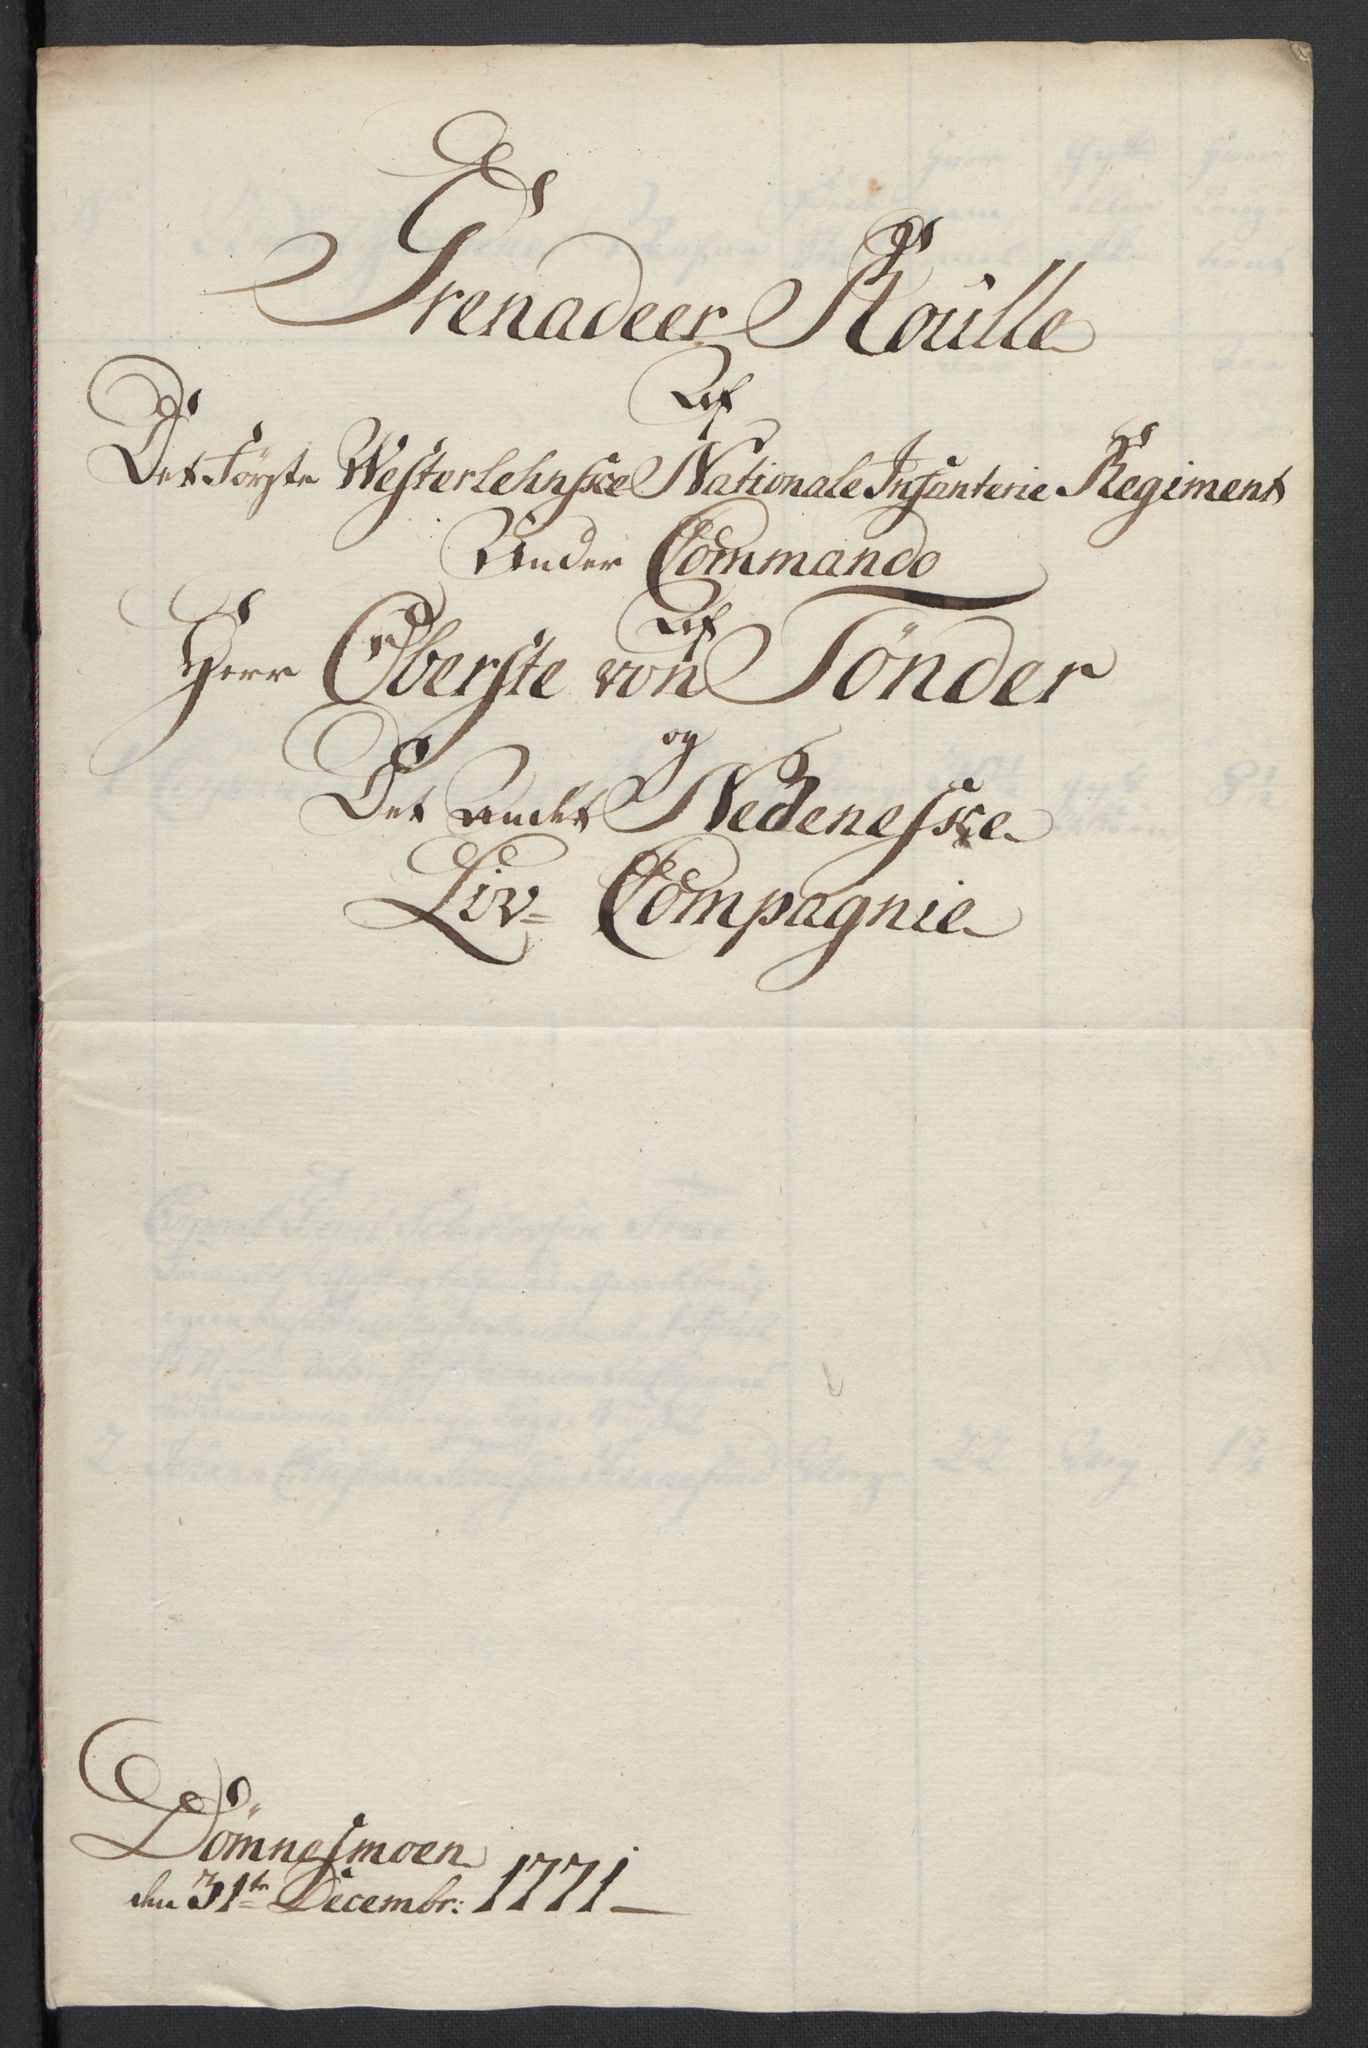 Grenadeer Roulle
Af
Det Förste Westerlehnske Nationale Infanterie Regiment
Under Commando
Af
Herr Oberste von Tönder
og
Det Andet Nedeneske
Liv= Compagnie
Dömnesmoen
den 31te Decembr: 1771